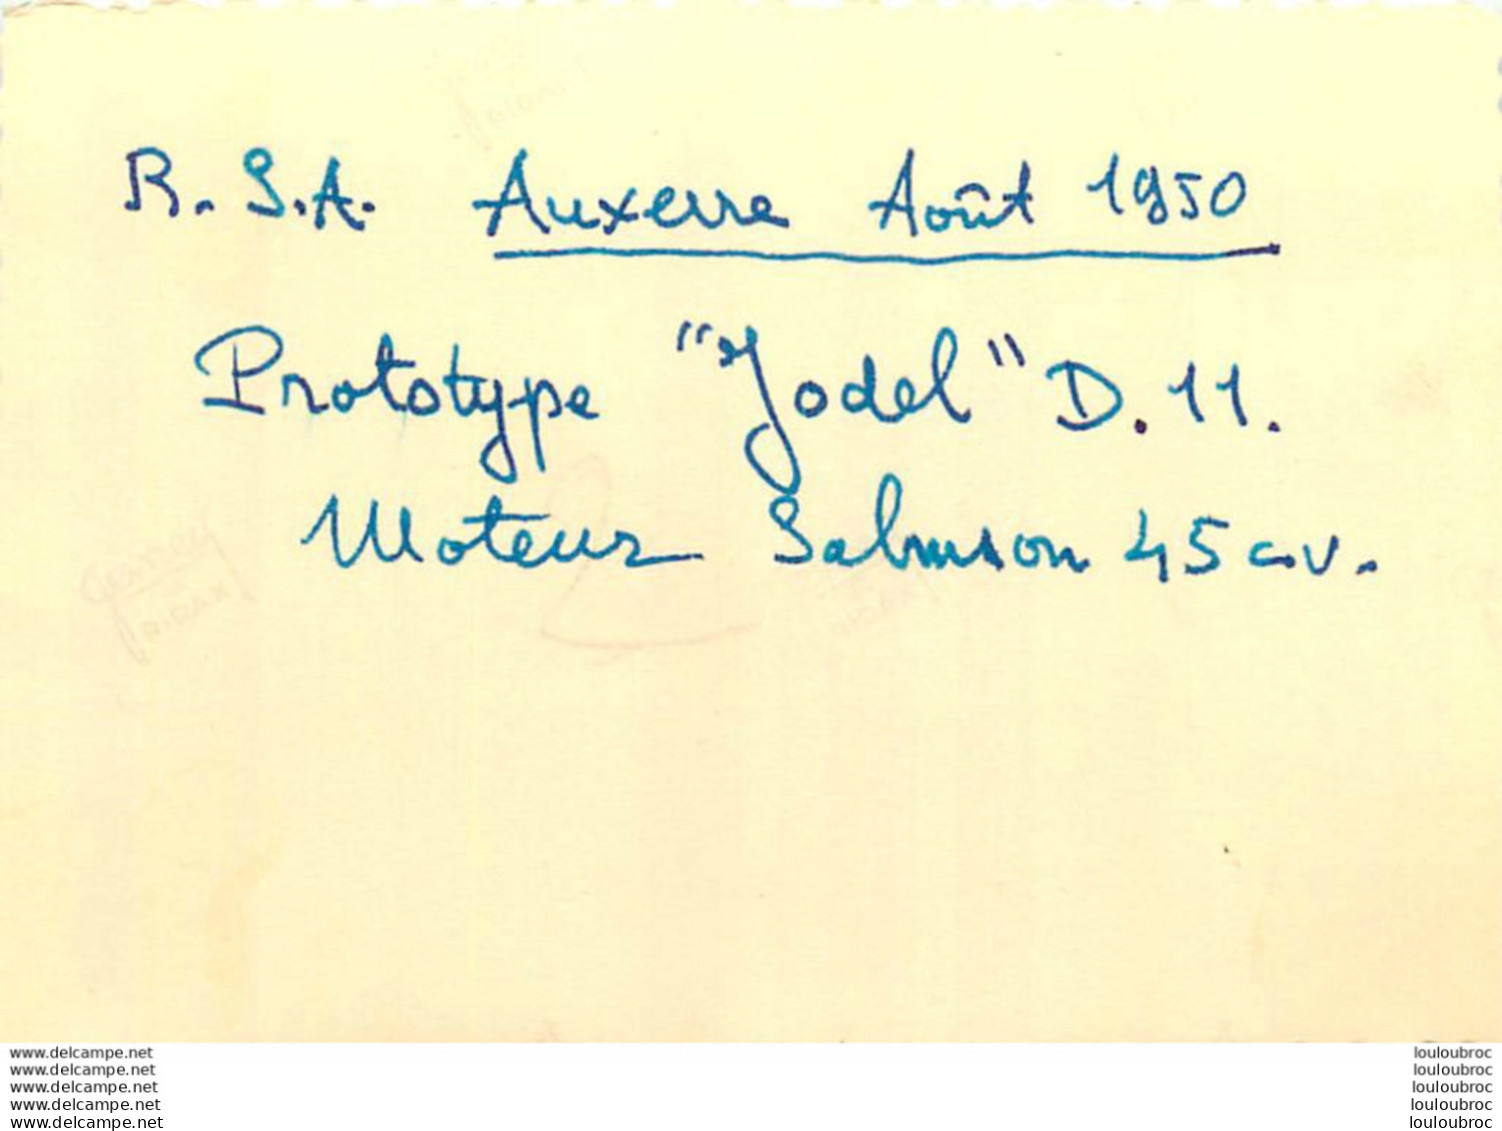 R.S.A. Auxerre Août 1950
Prototype "Jodel" D.11.
Moteur Salmson 45 c.v.
www.delcampe.net
www.delcampe.net
www.delcampe.net
www.delcampe.net
www.delcampe.net
louloubroc
louloubroc
louloubroc
louloubroc
louloubroc